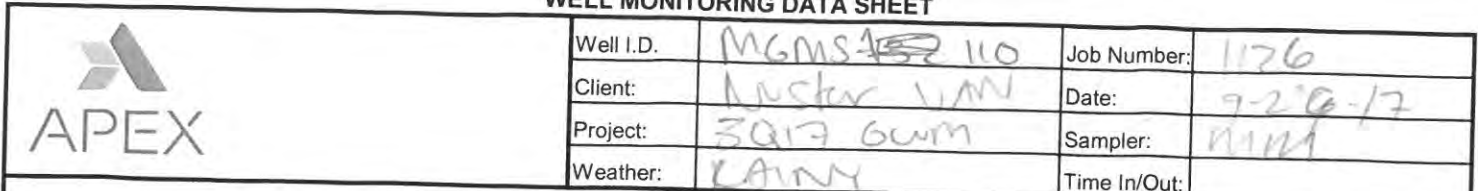 WELL MONITORING DATA SHEET
APEX
Well I.D. MGMS 110 Job Number: 1126
Client: NuStar VAN Date: 9-26-17
Project: 3Q17 GWM Sampler:
Weather: RAINY Time In/Out: